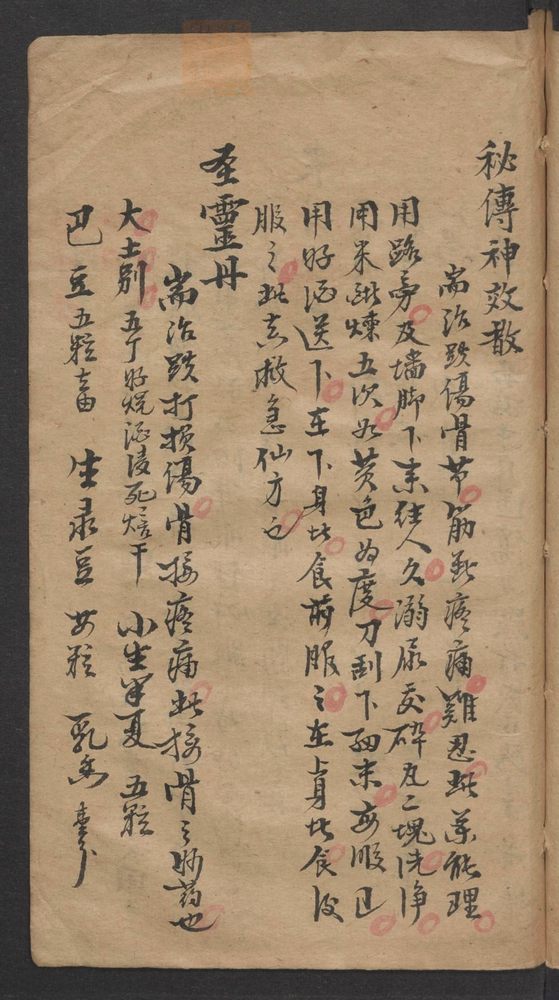 秘傳神效散
耑治跌傷骨节筋斷疼痛難忍此葯能理
用路旁及墻脚下来往人久溺尿交碎瓦二塊洗净
用米醋煉五次如黄色为度刀刮下細末每服己
用好酒送下在下身者食前服之在上身者食後
服之此真救急仙方也
圣靈丹
耑治跌打損傷骨接疼痛此接骨之妙药也
大土別五丁好焼酒浸死焙干 小生半夏五粒
巴豆五粒 生彔豆廿粒 乳香